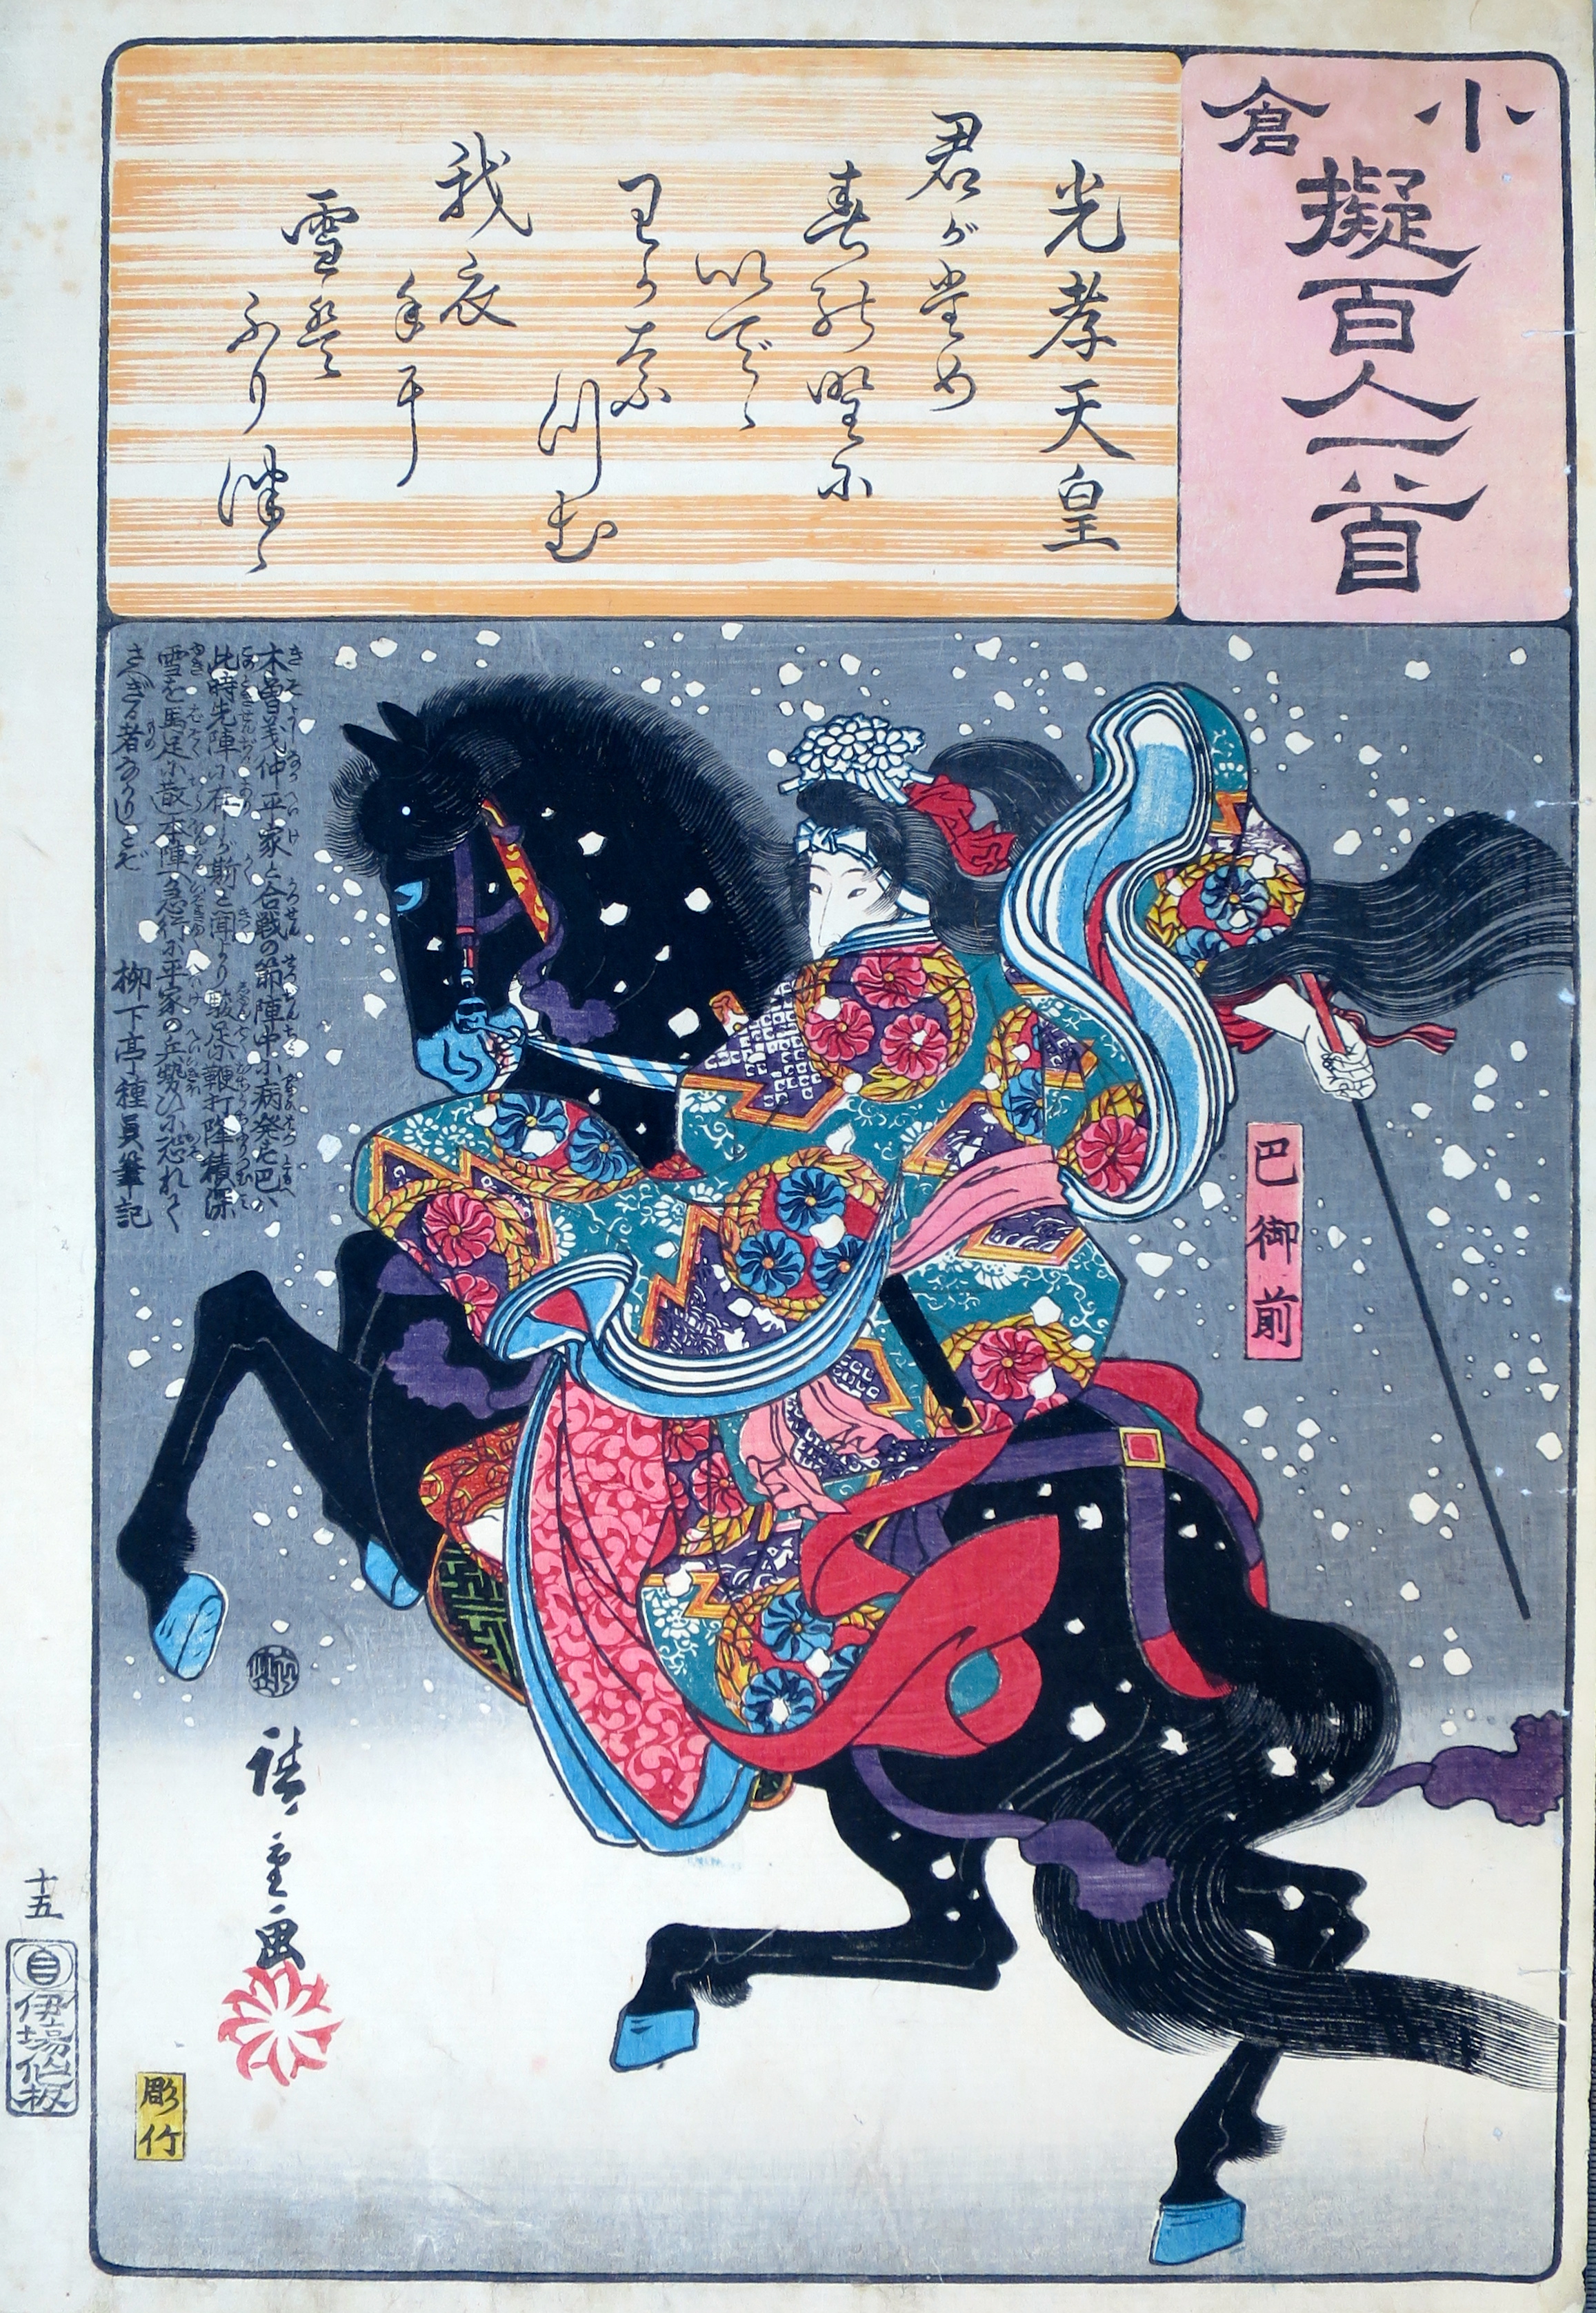 小倉
擬百人一首
光孝天皇
君がため
春の野に
いでゝ
わかな
つむ
我衣
手に
雪は
ふりつゝ
木曽義仲平家と合戦の節陣中に病発せ巴ハ
此時先陣に在しが斯と聞より駿足に鞭打降積深
雪を馬足に散本陣へ急行に平家の兵勢ひに恐れて
さへぎる者なかりしとぞ
柳下亭種員筆記
巴御前
廣重画
彫竹
十五
伊場仙板